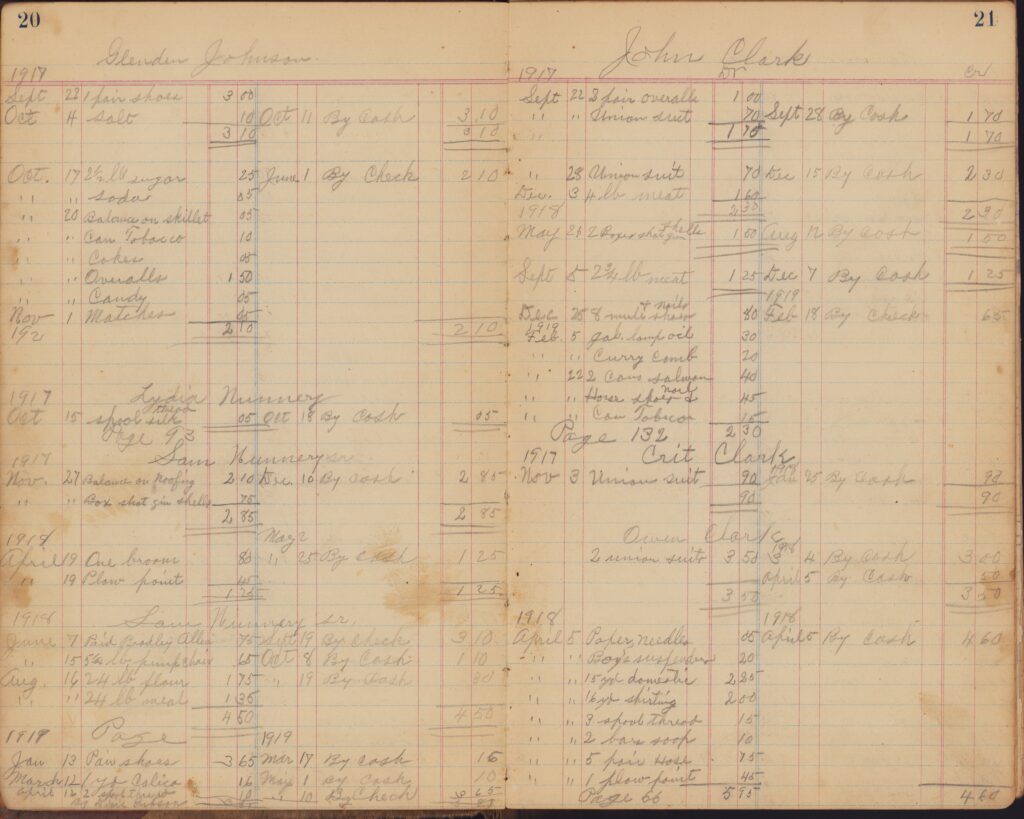 20
Glenden Johnson.
1917
Sept 23 1 pair shoes 3 00
Oct 4 Salt 10 Oct 11 By Cash 3 10
3 10 3 10
Oct. 17 2½ lb sugar 25 June 1 By Check 2 10
" " Soda 05
" 20 Balance on skillet 05
" " Can Tobacco 10
" " Cakes 05
" " Overalls 1 50
" " Candy 05
Nov 1 Matches 05
192 2 10 2 10
1917 Lydia Nunnery
Oct 15 spool silk thread 05 Oct 18 By Cash 05
Page 93
1917 Sam Nunnery sr.
Nov. 27 Balance on Roofing 2 10 Dec. 10 By Cash 2 85
" " Box shot gun shells 75
2 85 2 85
1918 May 2
April 19 One broom 80 " 25 By Cash 1 25
" 19 Plow point 45
1 25 1 25
1918 Sam Nunnery sr.
June 7 Paid Bradley 75 Sept 19 By Check 3 10
" 15 65 Oct 8 By Cash 1 10
Aug. 16 24 lb flour 1 75 " 19 By Cash 30
" " 24 lb meal 1 35
4 50 4 50
1919 Page 1919
Jan 13 Pair shoes 3 65 Mar 17 By Cash 16
March 12 1 yd Calico 16 May 1 By Cash 10
April 12 2 spool thread 10 " 10 By Check 3 65
Gibson
21
John Clark
1917 Dr Cr
Sept 22 3 pair overalls 1 00
" " Union suit 70 Sept 28 By Cash 1 70
" 1 70 1 70
" 28 Union suit 70 Dec 15 By Cash 2 30
Dec. 3 4 lb meat 1 60
1918 2 30 2 30
May 21 2 Boxes shot gun shells 1 50 Aug 12 By Cash 1 50
Sept 5 2¾ lb meat 1 25 Dec 7 By Cash 1 25
1919
Dec 25 8 mule shoes & nails 80 Feb 18 By Check 65
1919
Feb. 5 gal. lamp oil 30
" " Curry comb 20
" 22 2 Cans salmon 40
" " Horse shoes & nails 45
" " Can Tobacco 15
Page 132 2 30
1917 Crit Clark
Nov 3 Union suit 90 Jan 25 By Cash 90
90 90
Owen Clark
1918
2 union suits 3 50 3 4 By Cash 3 00
April 5 By Cash 50
3 50 3 50
1918 1918
April 5 Paper needles 05 April 5 By Cash 4 60
" " Boys suspenders 20
" " 15 yd domestic 2 25
" " 16 yd shirting 2 00
" " 3 spool thread 15
" " 2 bars soap 10
" " 5 pair Hose 75
" " 1 plow point 45
Page 66 5 95 4 60